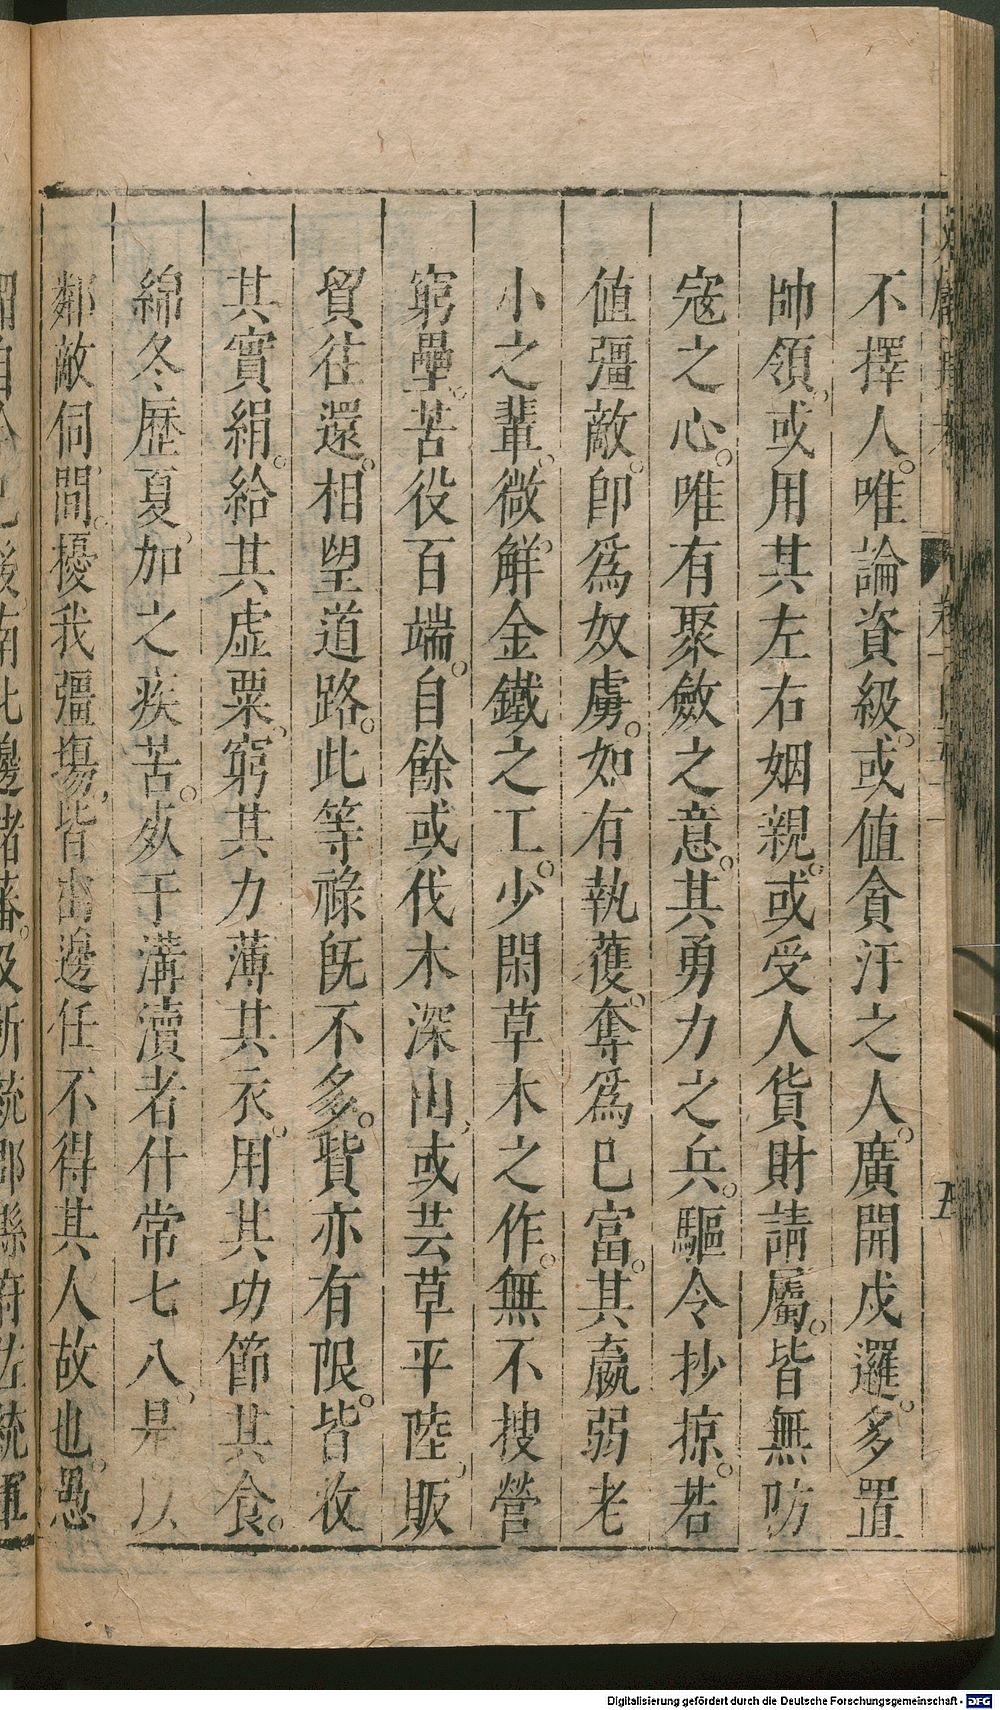 不擇人。唯論資級。或值貪汙之人。廣開戍邏。多置
帥領。或用其左右姻親。或受人貨財請屬。皆無防
寇之心。唯有聚斂之意。其勇力之兵。驅令抄掠。若
值彊敵。卽爲奴虜。如有執獲。奪爲已富。其羸弱老
小之輩、微解金鐵之工。少閑草木之作。無不搜營
窮壘。苦役百端。自餘或伐木深山、或芸草平陸、販
貿往還。相望道路。此等祿旣不多。貲亦有限。皆收
其實絹。給其虚粟、窮其力薄其衣。用其功節其食。
綿冬歷夏、加之疾苦。死于溝瀆者什常七八、是以
鄰敵伺間。擾我彊場、皆由邊任不得其人故也。愚
Digitalisierung gefördert durch die Deutsche Forschungsgemeinschaft - DFG